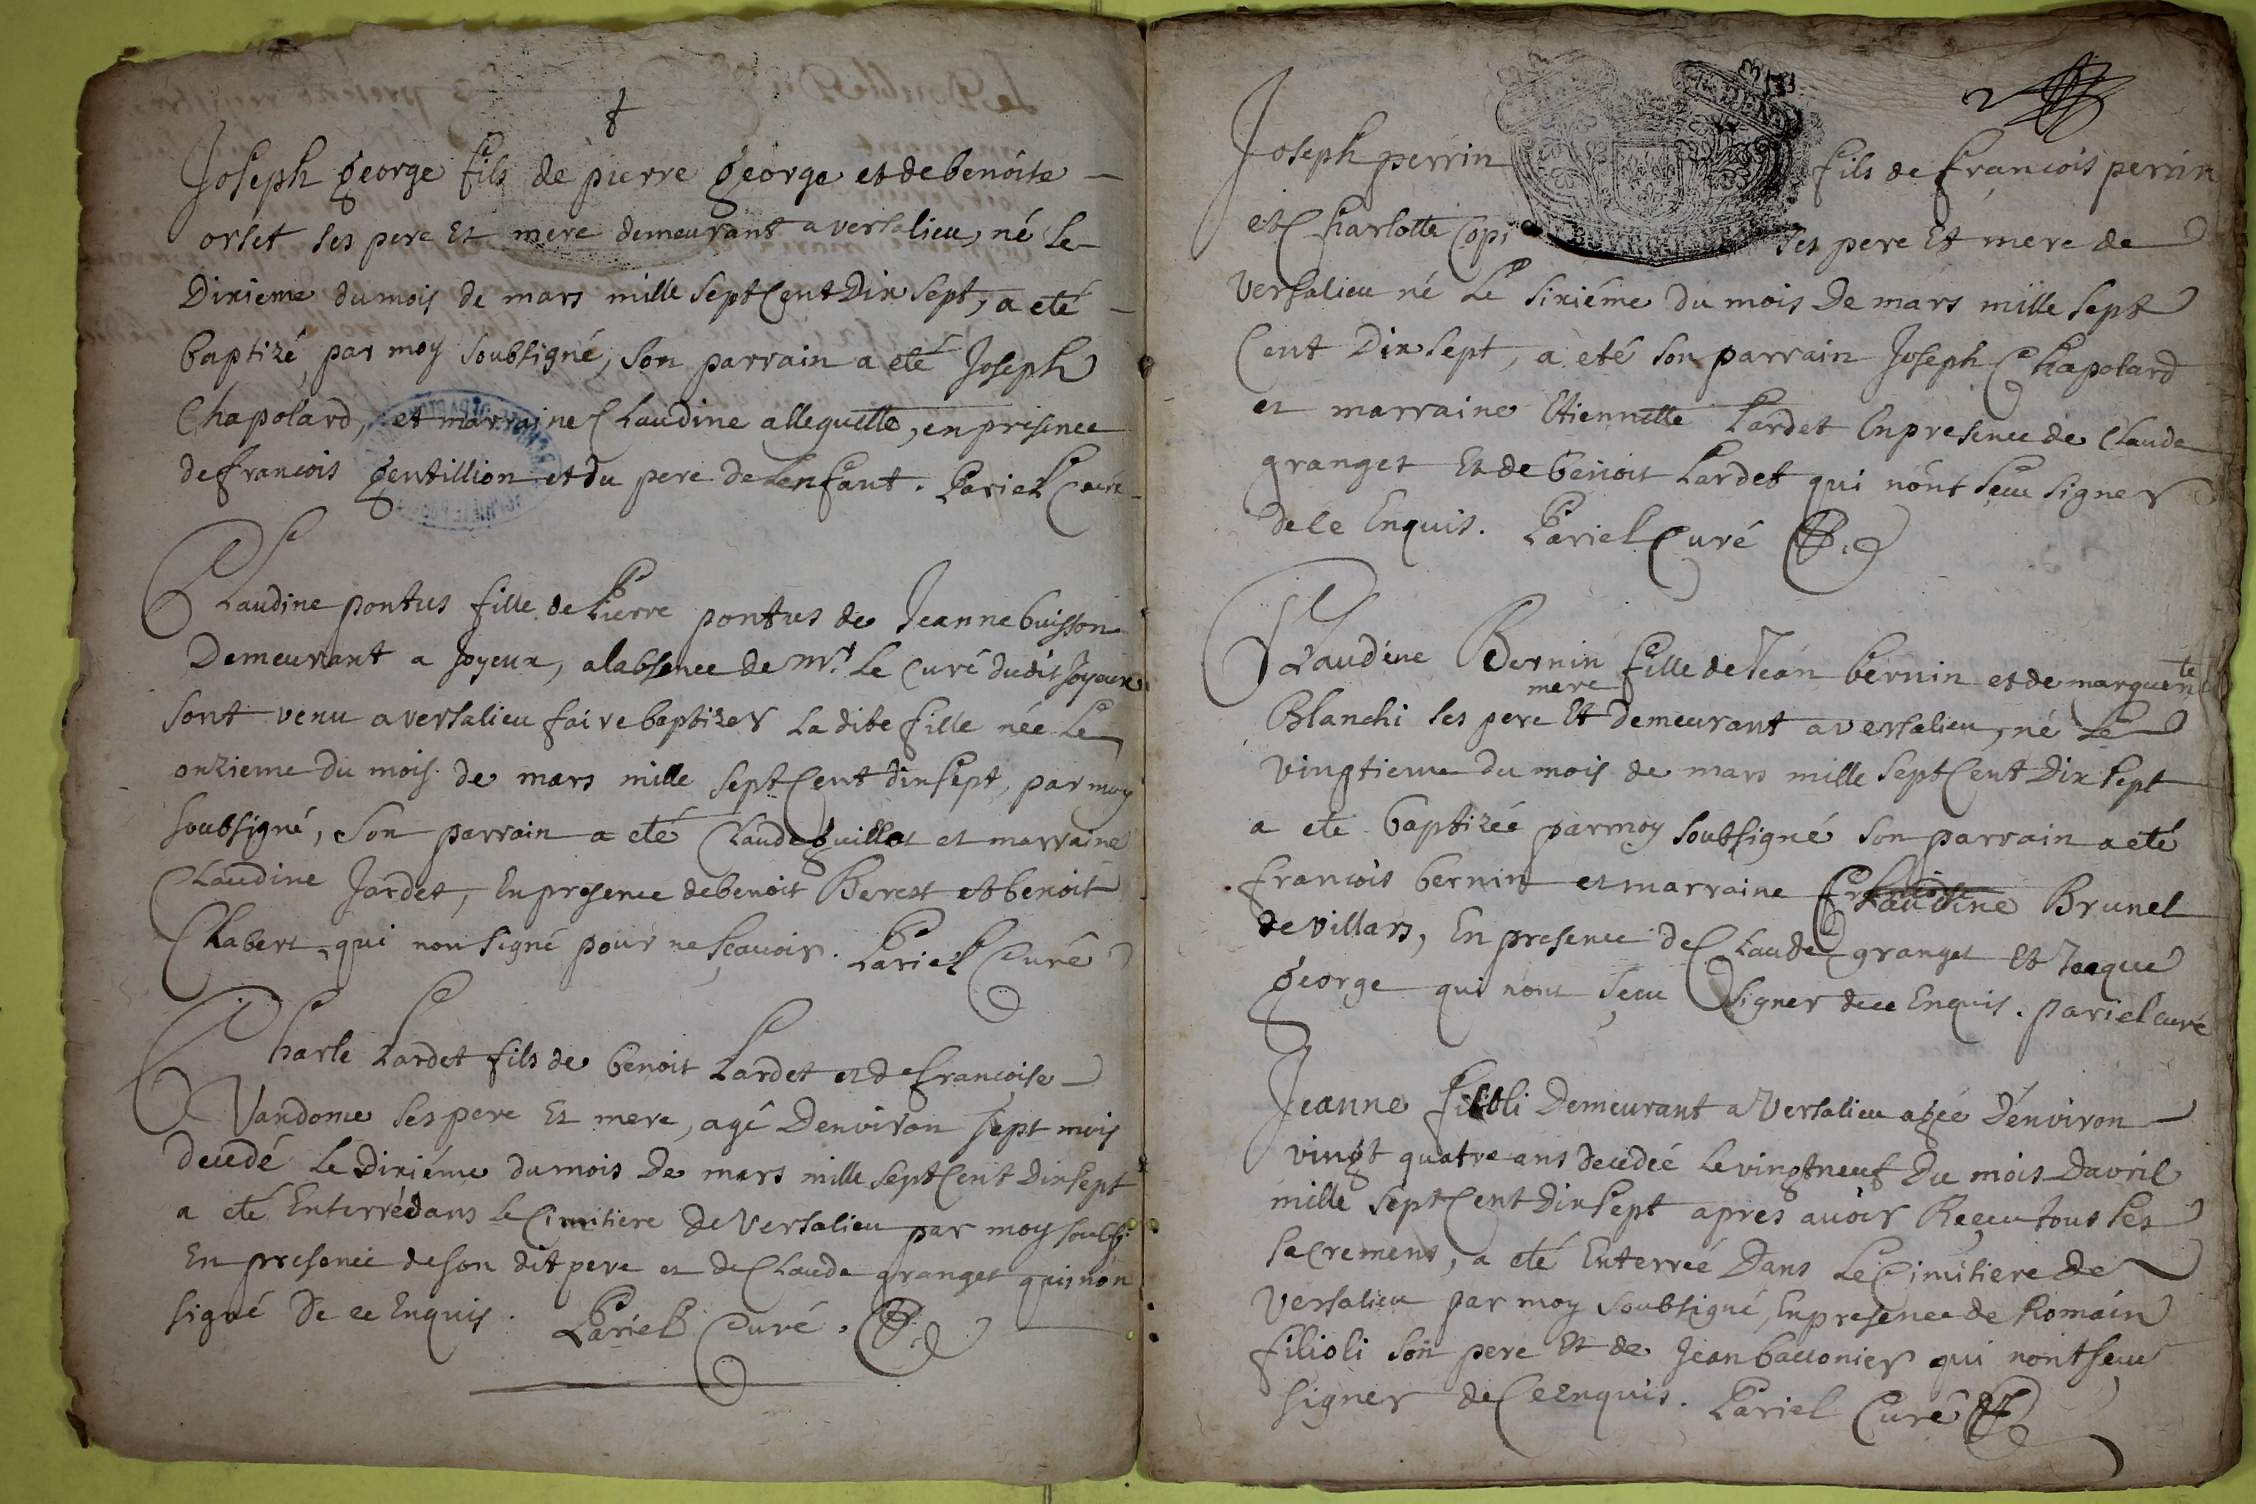 Joseph george fils de pierre george et de benoite
orset ses pere et mere demeurant a versalieu, né le
Dixieme du mois de mars mille sept Cent Dix sept, a eté
baptizé par moy soubsigné, son parrain a eté Joseph
Chapolard, et marraine Claudine allegutte, en presence
de francois gentillion et du pere de lenfant. Pariel Curé
Claudine pontus fille de Pierre pontus de Jeanne buisson
Demeurant a Joyeux, a labsence de mr. Le Curé du dit Joyeux
sont venu a versalieu faire baptizer La dite fille née Le
onzieme du mois de mars mille sept Cent dix sept, par moy
soubsigné, son parrain a eté Claude guillot et marraine
Claudine Jardet, En presence de benoit Berest et benoit
Chabert qui non signé pour ne scavoir. Pariel Curé
Charle Lardet fils de benoit Lardet et de francoise
Vandome ses pere et mere, agé Denviron sept mois
decedé Le Dixiéme du mois De mars mille sept Cent Dix sept
a eté Enterré dans Le Cimitiere De Versalieu par moy soubsg.
En presence de son dit pere et de Claude granget qui non
signé De ce Enquis. Pariel Curé.
2
Joseph perrin fils de francois perrin
et Charlotte Copi ses pere et mere de
Versalieu né Le sixiéme du mois De mars mille sept
Cent Dix sept, a eté son parrain Joseph Chapolard
et marraine Etiennette Lardet En presence de Claude
granget Et de benoit Lardet qui nont sceu signer
de ce Enquis. Pariel Curé
Claudine Bernin fille de Jean bernin et de marguerite
mere
Blanchi ses pere Et demeurant a versalieu, né Le
vingtieme du mois de mars mille sept Cent Dix sept
a eté baptizée par moy soubsigné son parrain a eté
francois bernin et marraine Claudine Brunel
de villars, En presence de Claude granget Et Jaque
george qui nont sceu signer de ce Enquis. pariel curé
Jeanne filioli Demeurant a Versalieu agée Denviron
vingt quatre ans decedée Le vingt neuf Du mois Davril
mille sept Cent Dix sept apres avoir Receu tous ses
sacrement, a eté Enterrée Dans Le Cimitiere de
Versalieu par moy soubsigné, En presence de Romain
filioli son pere Et de Jean baconier qui nont sceu
signer de Ce Enquis. Pariel Curé